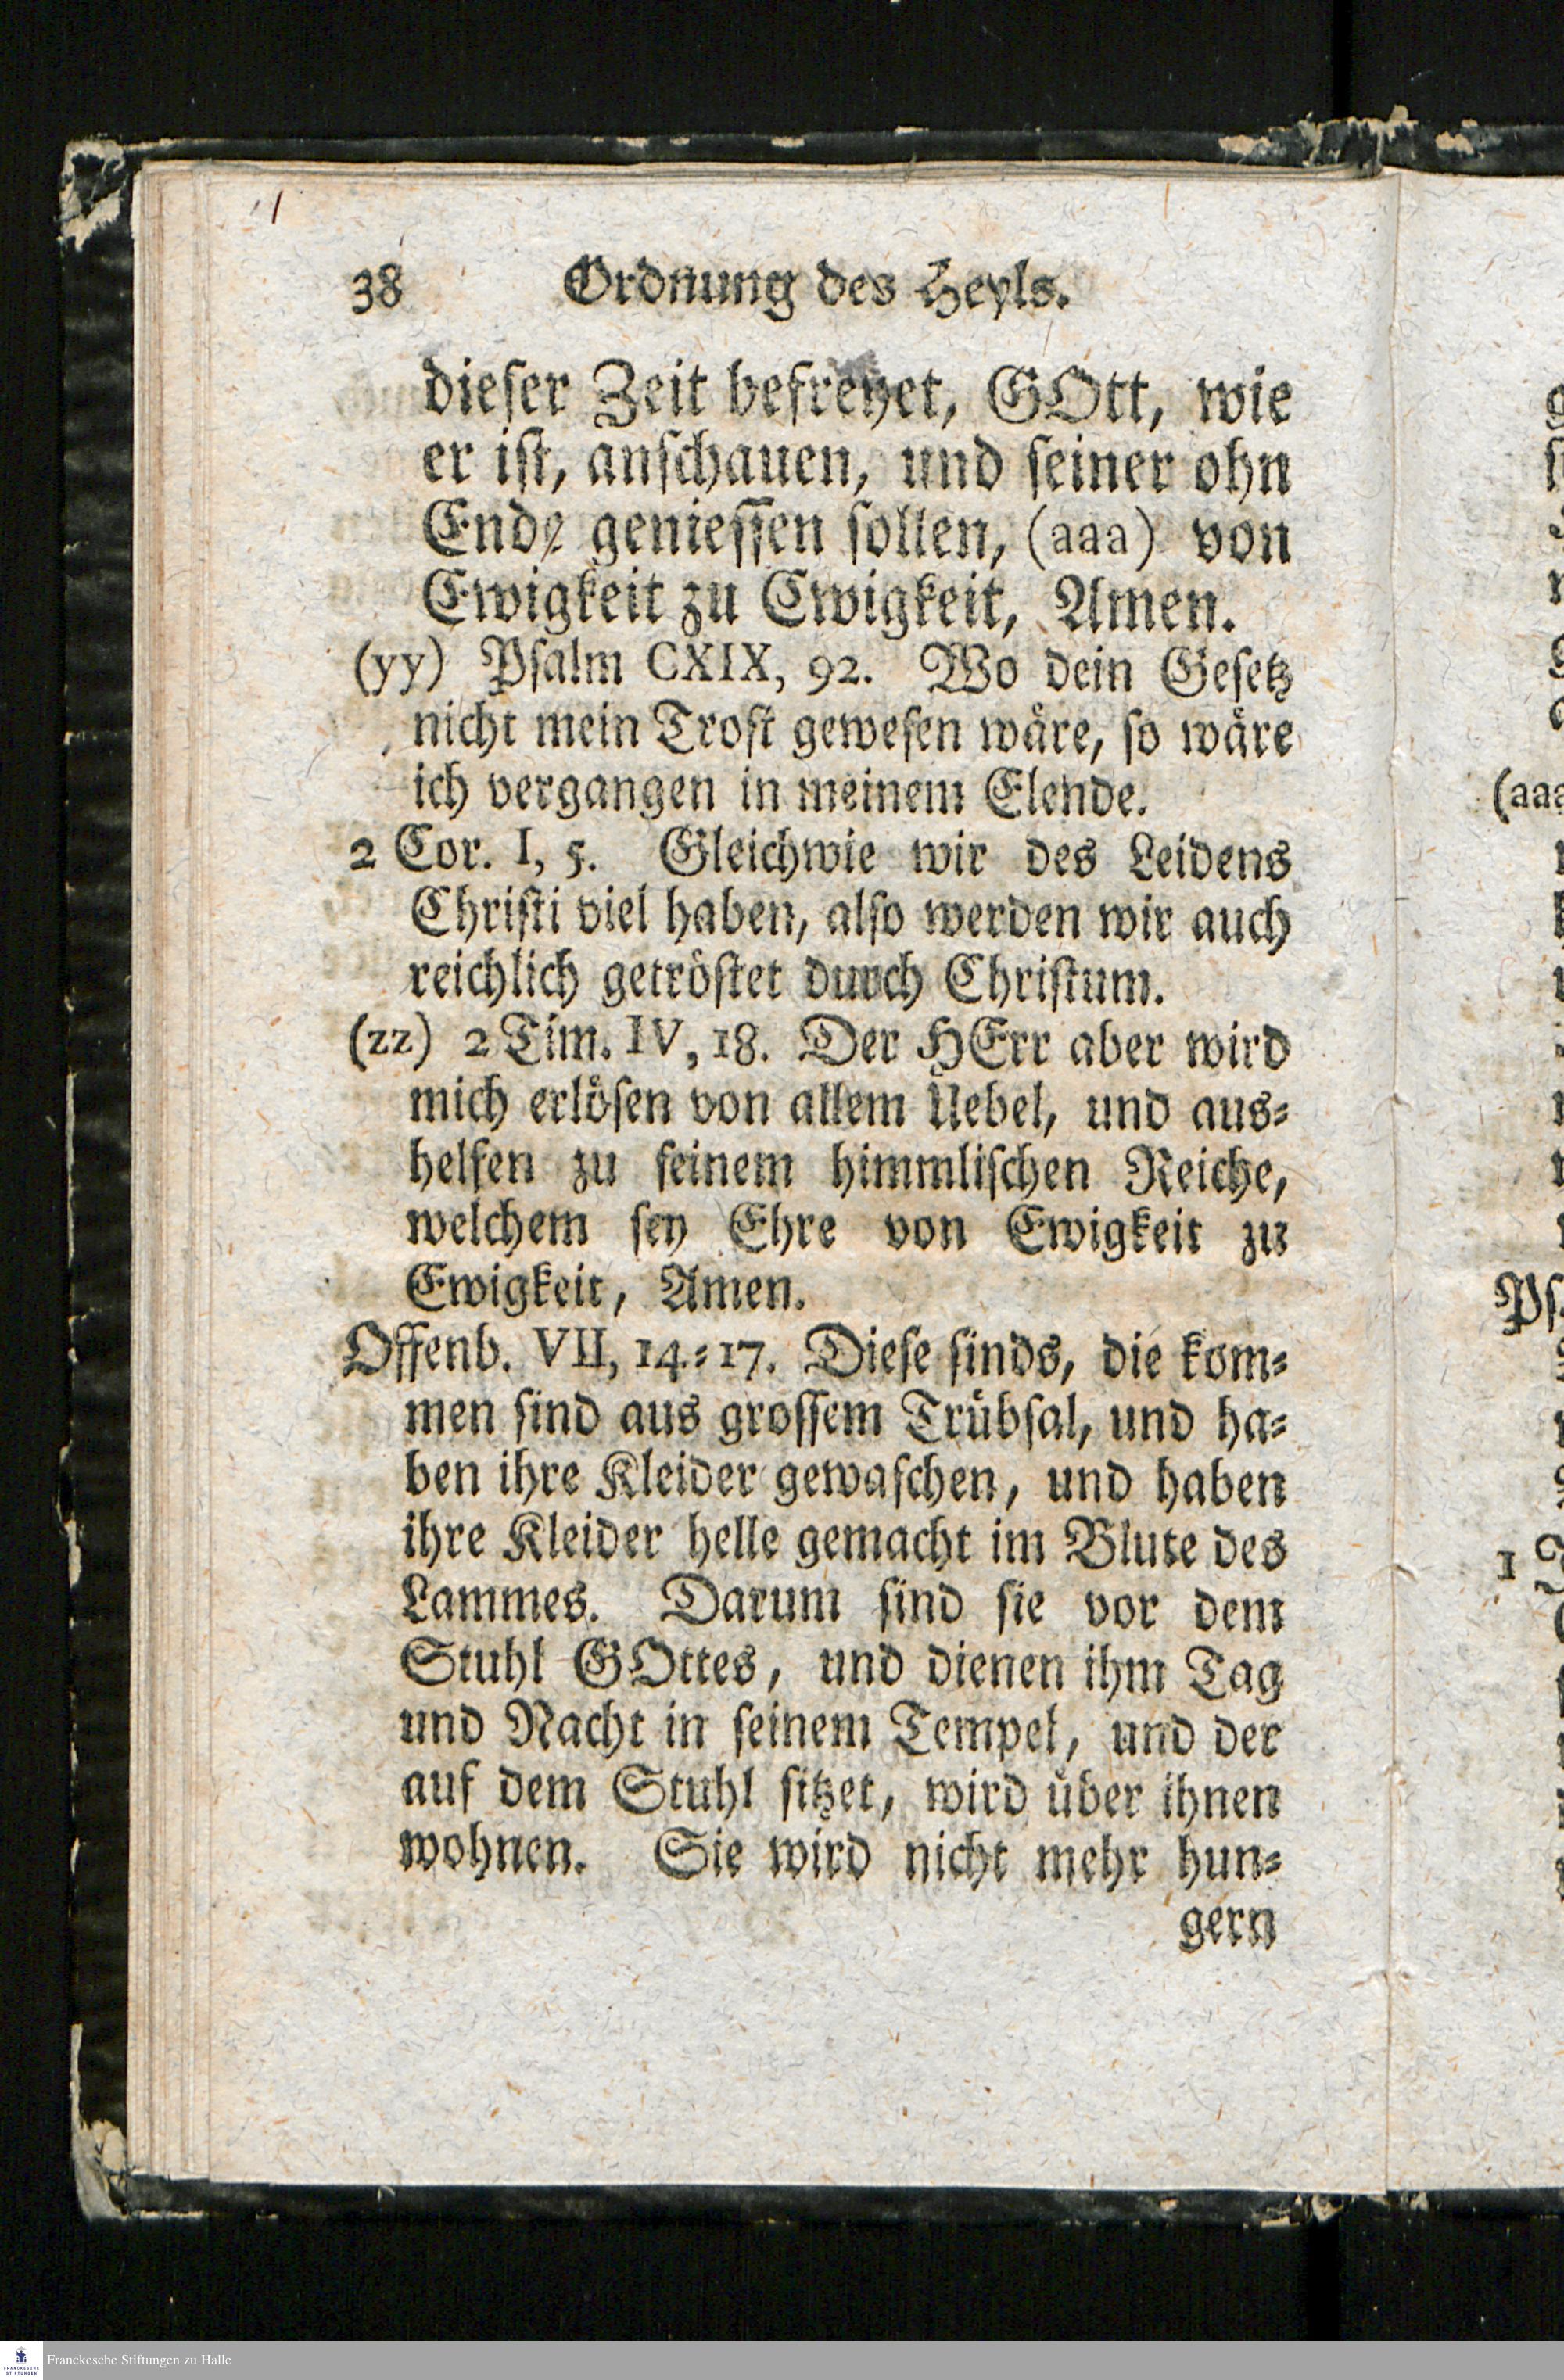 38 Ordnung des Heyls.
dieser Zeit befreyet, GOtt, wie
er ist, anschauen, und seiner ohn
Ende geniessen sollen, (aaa) von
Ewigkeit zu Ewigkeit, Amen.
(yy) Psalm CXIX, 92. Wo dein Gesetz
nicht mein Trost gewesen wåre, so wåre
ich vergangen in meinem Elende.
2 Cor. I, 5. Gleichwie wir des Leidens
Christi viel haben, also werden wir auch
reichlich getröstet durch Christum.
(zz) 2 Tim. IV, 18. Der HErr aber wird
mich erlösen von allem Uebel, und aus⸗
helfen zu seinem himmlischen Reiche,
welchem sey Ehre von Ewigkeit zu
Ewigkeit, Amen.
Offenb. VII, 14.⸗17. Diese sinds, die kom⸗
men sind aus grossem Trübsal, und ha⸗
ben ihre Kleider gewaschen, und haben
ihre Kleider helle gemacht im Blute des
Lammes. Darum sind sie vor dem
Stuhl GOttes, und dienen ihm Tag
und Nacht in seinem Tempel, und der
auf dem Stuhl sitzet, wird über ihnen
wohnen. Sie wird nicht mehr hun⸗
gern
(aaa
Ps.
1
Franckesche Stiftungen zu Halle